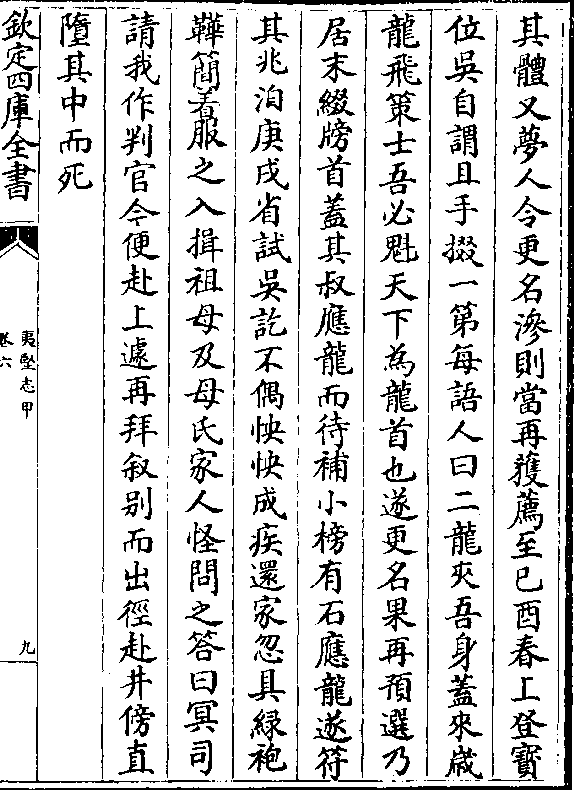 其體又夢人令更名滲則當再獲薦至己酉春上登寳
位吳自謂且手掇一第每語人曰二龍夾吾身蓋來嵗
龍飛策士吾必魁天下為龍首也遂更名果再預選乃
居末綴牓首蓋其叔應龍而待補小榜有石應龍遂符
其兆洎庚戌省試吳訖不偶怏怏成疾還家忽具緑袍
鞾簡着服之入揖祖母及母氏家人怪問之答曰冥司
請我作判官今便赴上遽再拜叙别而出徑赴井傍直
墮其中而死
欽定四庫全書
夷堅志甲
卷六
九